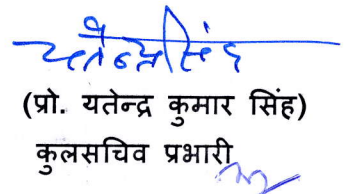 यतेन्द्र सिंह
(प्रो. यतेन्द्र कुमार सिंह)
कुलसचिव प्रभारी